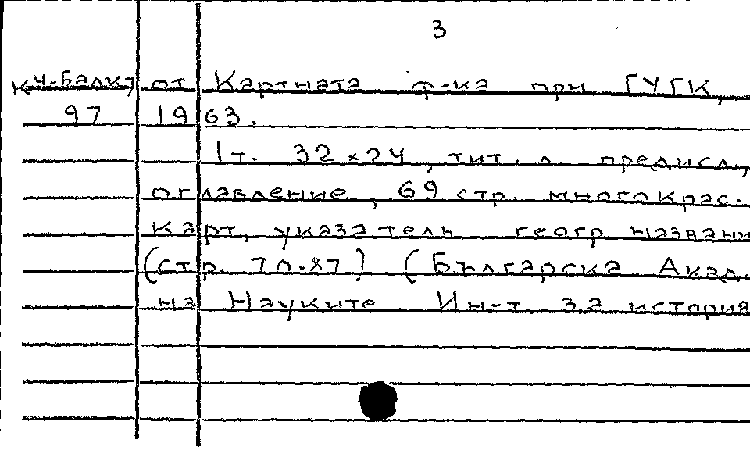 3
К4-Балк, от Картната ф-ка при ГУГК,
97 1963.
1т. 32x24, тит. л. предисл.,
оглавление, 69 стр. многокрас.
карт, указатель геогр. названи
(стр. 70-87) (Българска Акад.
на Науките Ин-т за история